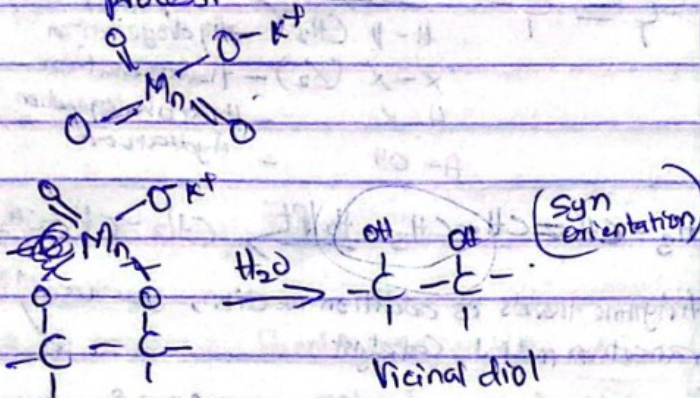 O O-K+
Mn
O O
O O-K+
Mn
O O
H2O
OH OH
(Syn
orientation)
C C
— C — C —
Vicinal diol